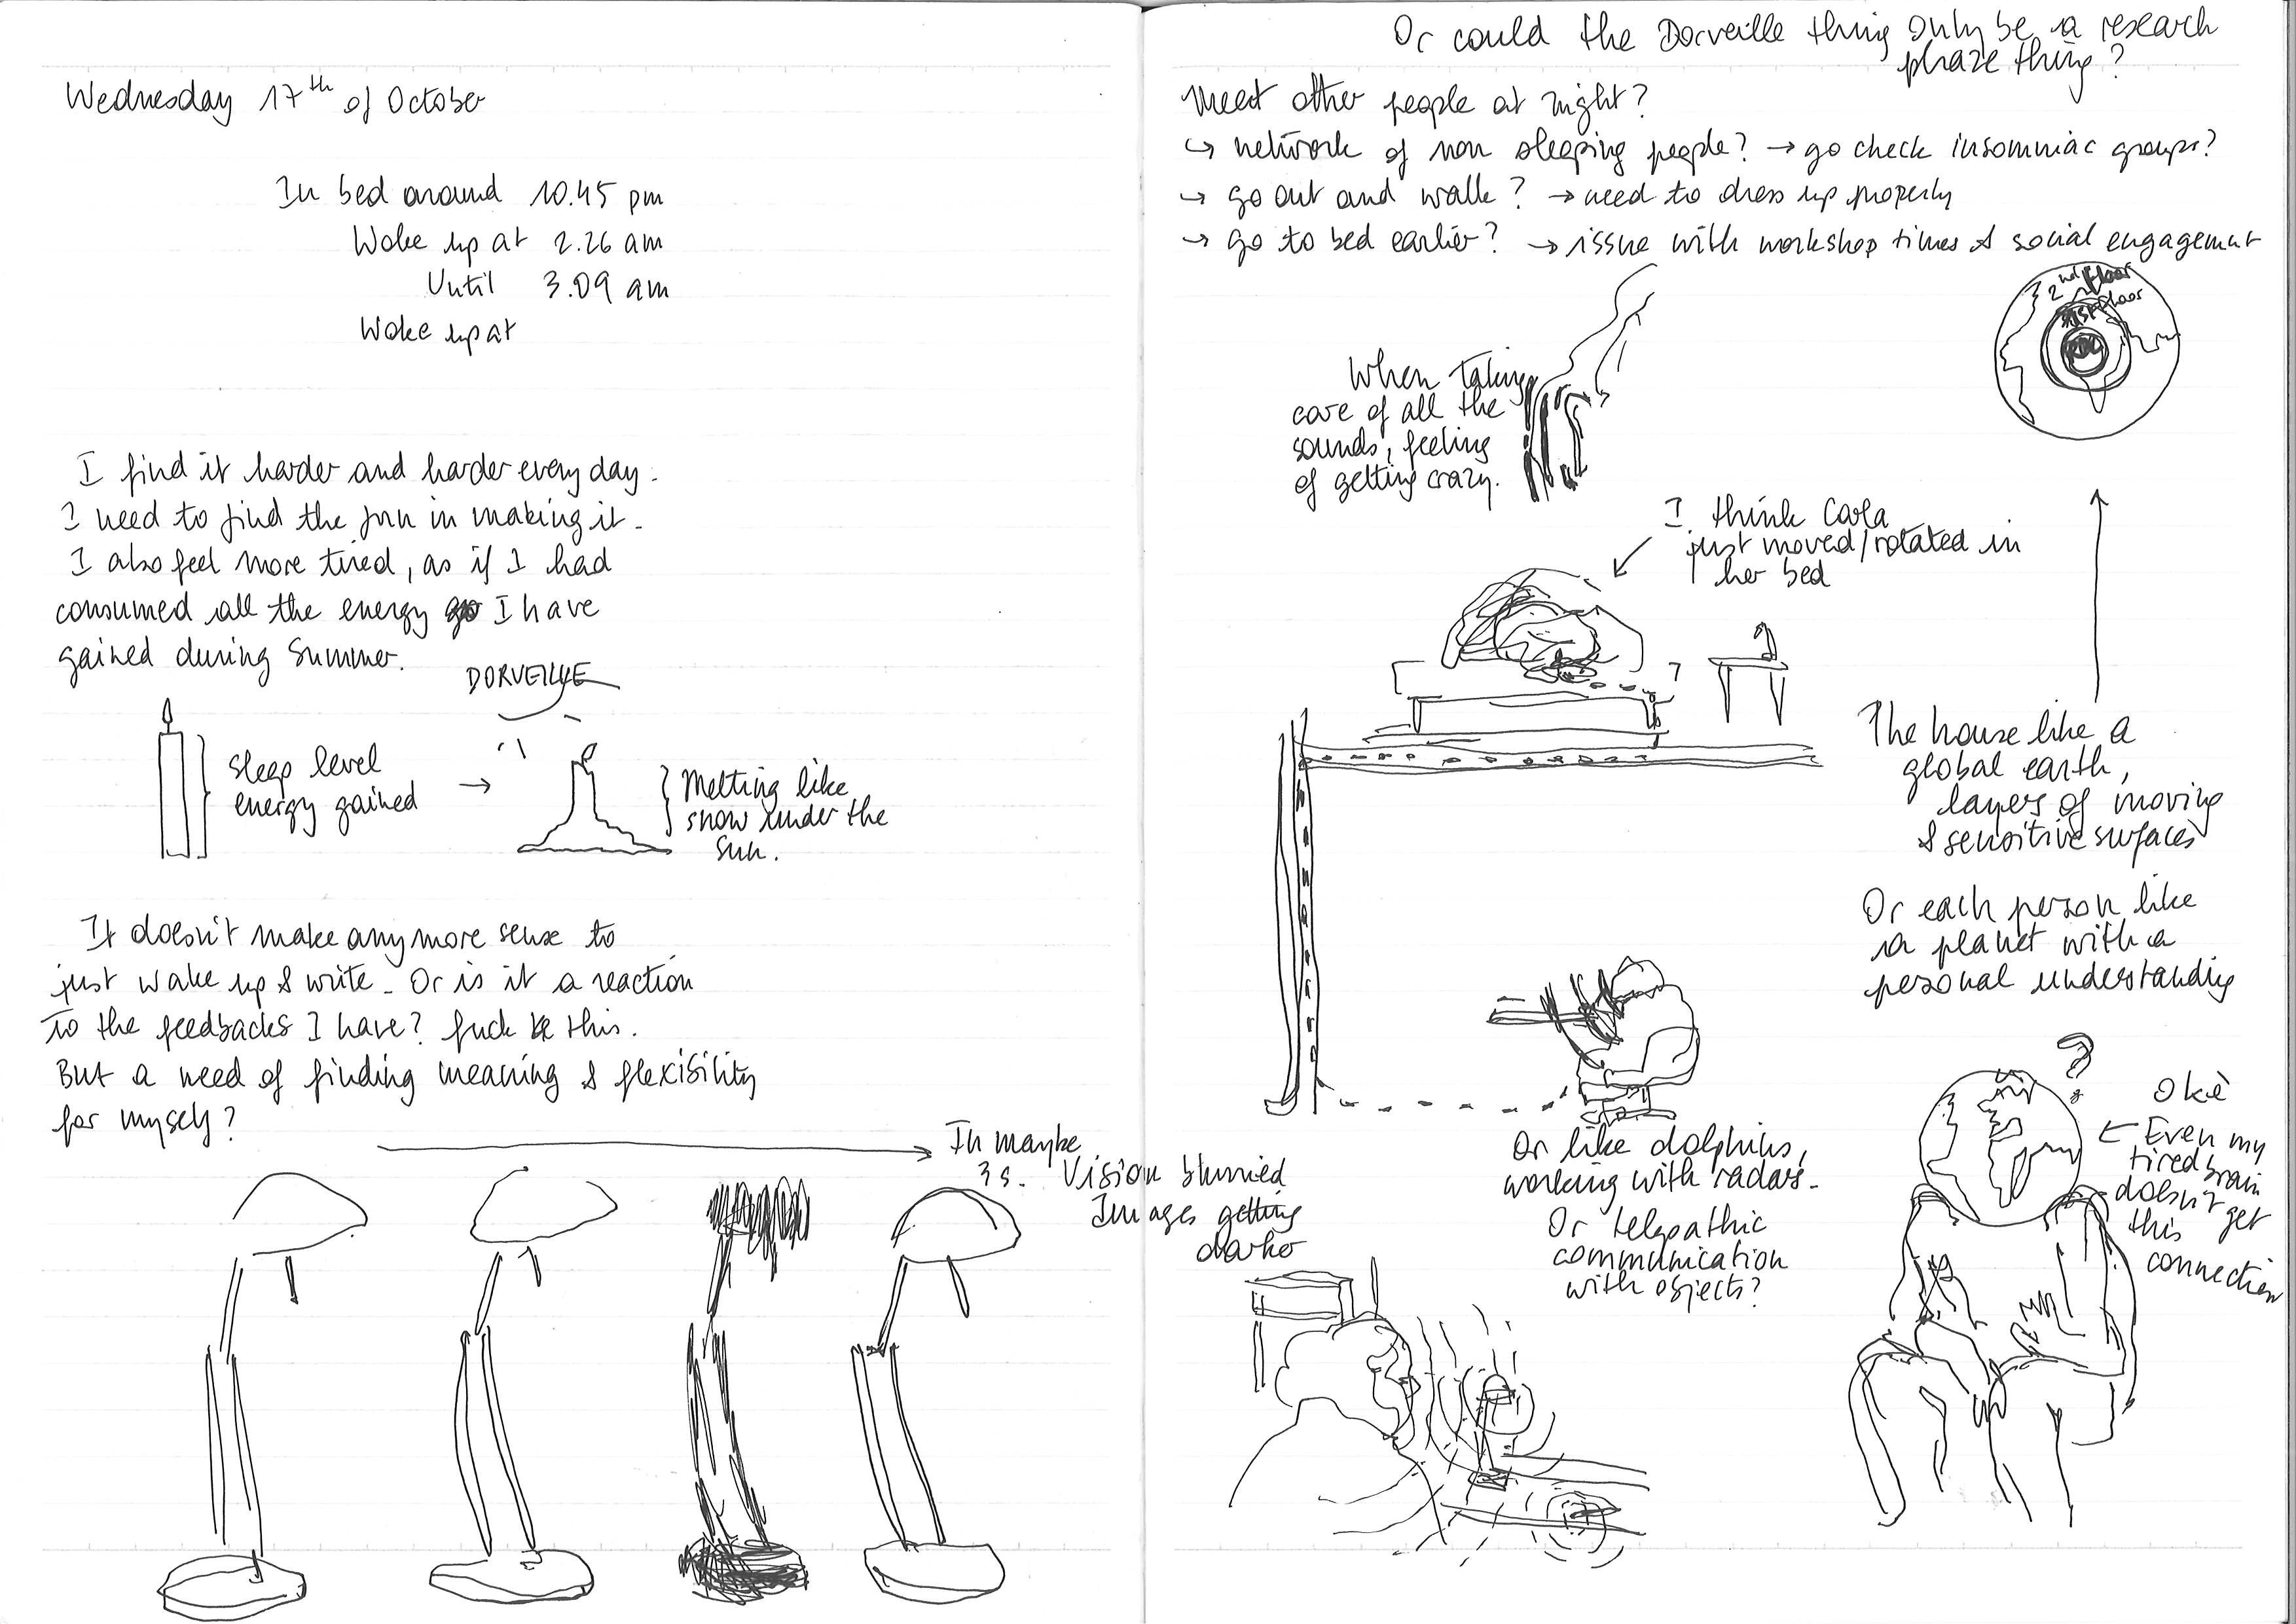 Wednesday 17th of October
In bed around 10.45 pm
Woke up at 2.26 am
Until 3.09 am
Woke up at
I find it harder and harder every day.
I need to find the fun in making it.
I also feel more tired, as if I had
consumed all the energy I have
gained during Summer.
DORVEILLE
Sleep level
energy gained
→
Melting like
snow under the
sun.
It doesn't make anymore sense to
just wake up & write. Or is it a reaction
to the feedbacks I have? fuck this.
But a need of finding meaning & flexibility
for myself?
In maybe
3s. Vision blurried
Images getting
darker
Or could the Dorveille thing only be a research
phaze thing?
Meet other people at night?
↪ network of non sleeping people? → go check insomniac groups?
→ go out and walk? → need to dress up properly
→ go to bed earlier? → issue with workshop times & social engagement
2nd floor
1st floor
RDC
When taking
care of all the
sounds, feeling
of getting crazy.
I think Carla
just moved/rotated in
her bed
The house like a
global earth,
layers of moving
& sensitive surfaces
Or each person like
a planet with a
personal understanding
?
Okè
← Even my
tired brain
doesn't get
this
connection
Or like dolphins,
working with radars.
Or telepathic
communication
with objects?